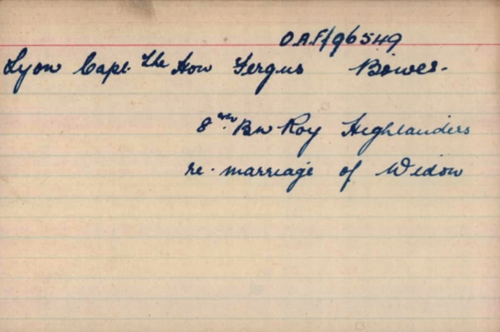 OAF/96549
Lyon Capt. The Hon Fergus Bowes-
8th Bn Roy Highlanders
re-marriage of Widow